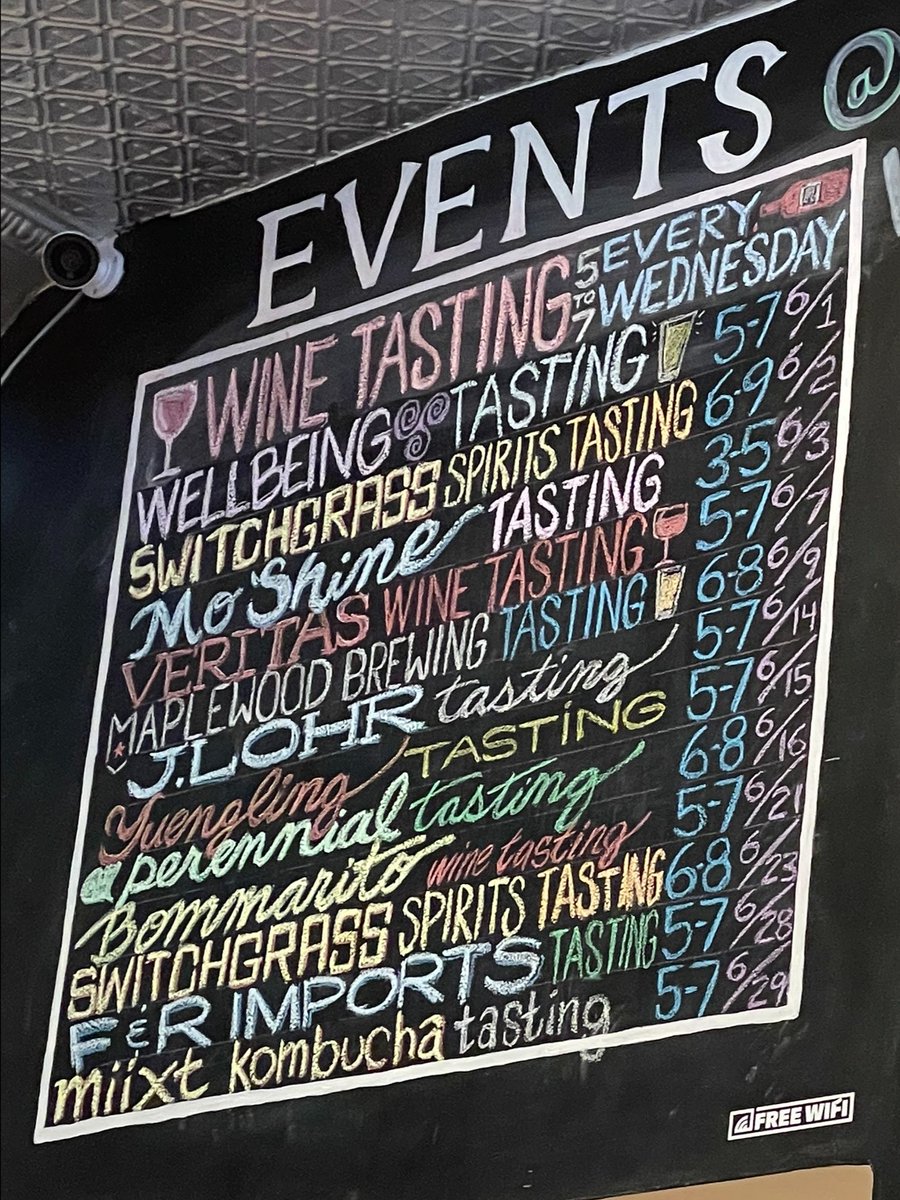 EVENTS @
WINE TASTING 5 TO 7 EVERY WEDNESDAY
WELLBEING TASTING 5-7 6/1
SWITCHGRASS SPIRITS TASTING 6-9 6/2
Mo'Shine TASTING 3-5 6/3
VERITAS WINE TASTING 5-7 6/7
MAPLEWOOD BREWING TASTING 6-8 6/9
J. LOHR tasting 5-7 6/14
Yuengling TASTING 5-7 6/15
perennial tasting 6-8 6/16
Bommarito wine tasting 5-7 6/21
SWITCHGRASS SPIRITS TASTING 6-8 6/23
F & R IMPORTS TASTING 5-7 6/28
miixt kombucha tasting 5-7 6/29
FREE WIFI